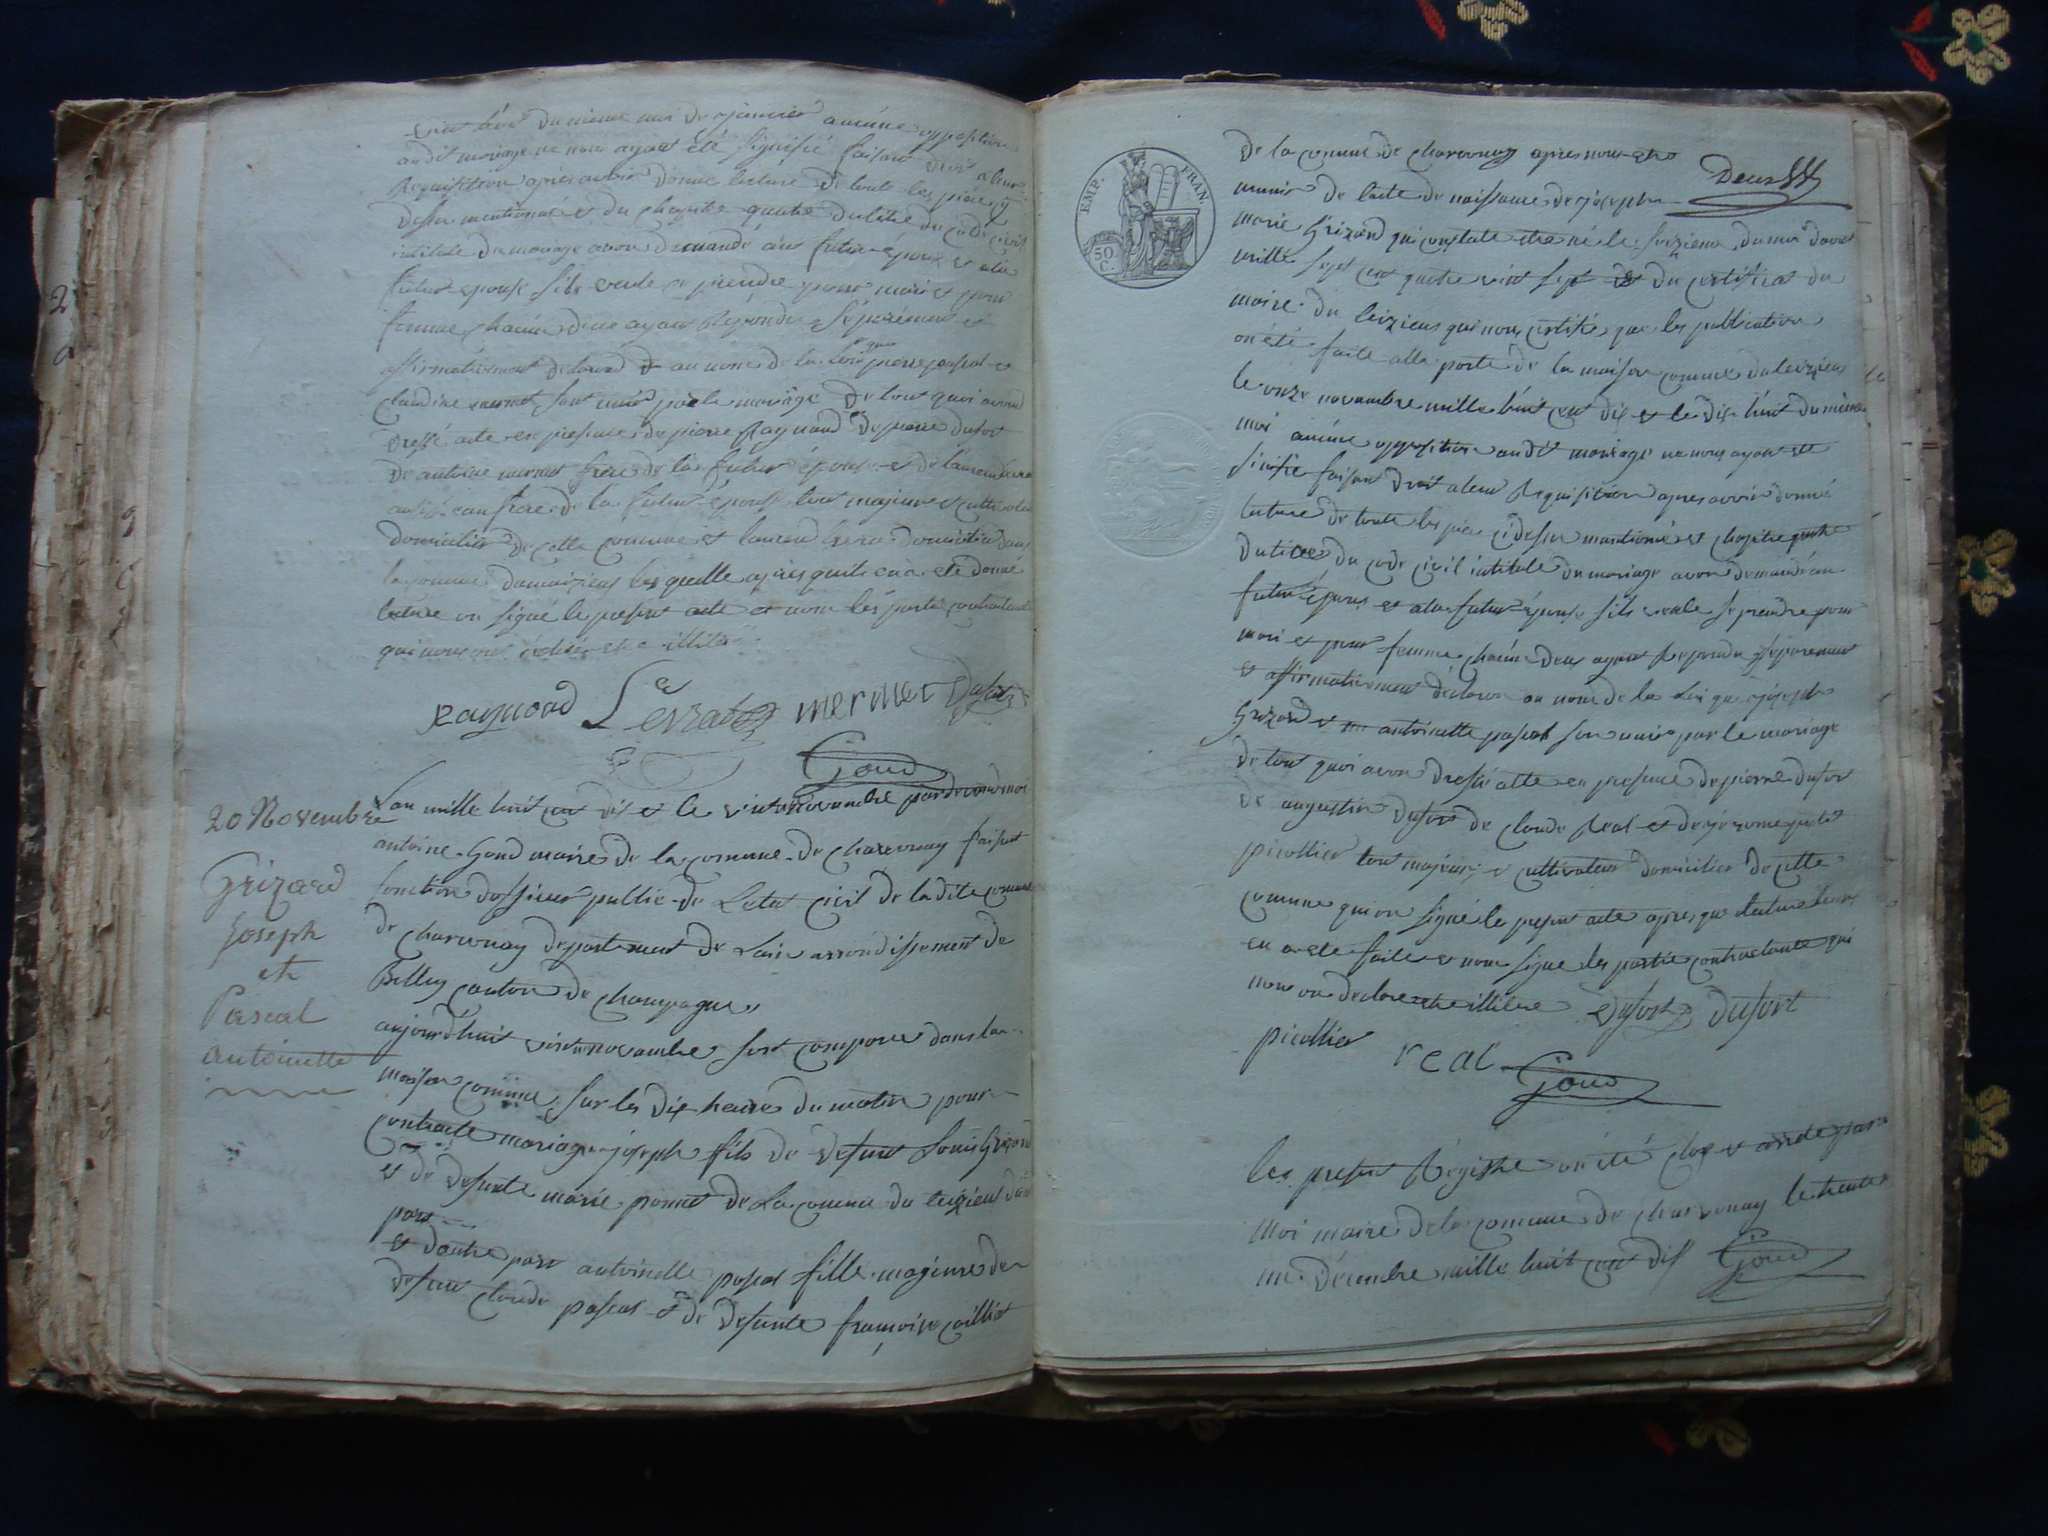 vint huit du même moi de janvier aucune opposition
audit mariage ne nous ayant été signifié faisant droit a leur
Requisition apres avoir donné lecture de toute les pièces cy
dessu mentionné et du chapitre quatre du titre du code civil
intitulé du mariage avon demandé au futur epoux et a la
futur epouse sils veule se prendre pour mari et pour
femme chacun deux ayant Repondu séparément et
affirmativement declaron au nom de la loi que pierre pascal et
Claudine mermet sont uni par le mariage de tout quoi avond
dressé acte en presence de pierre Raymond de pierre dufort
de antoine mermet frere de la futur épouse et de laurend
aussi frere de la futur épouse tous majeur et cultivateur
domicilié de cette commune et laurend domicilié dans
la commune lesquelle apres quil en a eté donné
lecture on signé le present acte et non les partie contractante
qui nous on déclaré etre illitéré
Raymond Levrat mermet Dufort
Goud
20 Novembre
Grizard
Joseph
et
Pascal
antoinette
Lan mille huit cent dix et le vint novembre pardevand moi
antoine Goud maire de la comune de charvonay faisant
fonction dofficier public de Letat civil de ladite comune
de charvonay departement de Lain arrondissement de
Belley canton de champagne
aujourdhuit vint novembre sont comparu dans la
maison comune sur les dix heure du matin pour
contracte mariage joseph fils de defunt Louis Grizard
et de defunte marie ponnet de La comune du leizieux dune
part
et dautre part antoinette pascal fille majeure de
defunt claude pascal et de defunte francoise
EMP. FRAN.
50 C.
de la comune de charvonay apres nous etre
Deux
munis de lacte de naissance de joseph
marie Grizard qui constate etre né le seizieme du moi davril
mille sept cent quatre vint sept et du certificat du
maire du leizieux qui nous certifie que les publication
on été faite alla porte de la maison comune du leizieux
le onze novembre mille huit cent dix et le dix huit du même
moi aucune opposition audit mariage ne nous ayant été
sinifie faisant droit a leur Requisition apres avoir donné
lecture de toute les piece cidessu mantionné et chapitre quatre
du titre du code civil intitulé du mariage avon demandé au
futur épous et a la futur épouse sils veule se prendre pour
mari et pour femme chacun deux ayant Repondu séparement
et affirmativement déclaron au nom de la Loi que joseph
Grizard et antoinette pascal son unis par le mariage
de tout quoi avon dressé acte en presence de pierre dufort
de augustin dufort de claude Real et de
picollier tous majeur et cultivateur domicilié de cette
comune qui on signé le present acte apres que lecture leurs
en a eté faite et non signe les partie contractante qui
nous on declaré etre illitére Dufort Dufort
picollier real Goud
les present Régistre on été clos et arrete par
moi maire de la comune de charvonay le trente
un décembre mille huit cent dix Goud